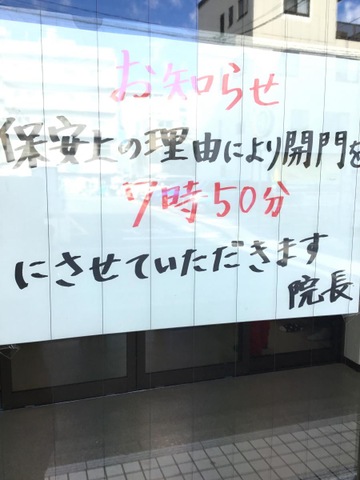 お知らせ
保安上の理由により開門を
7時50分
にさせていただきます
院長